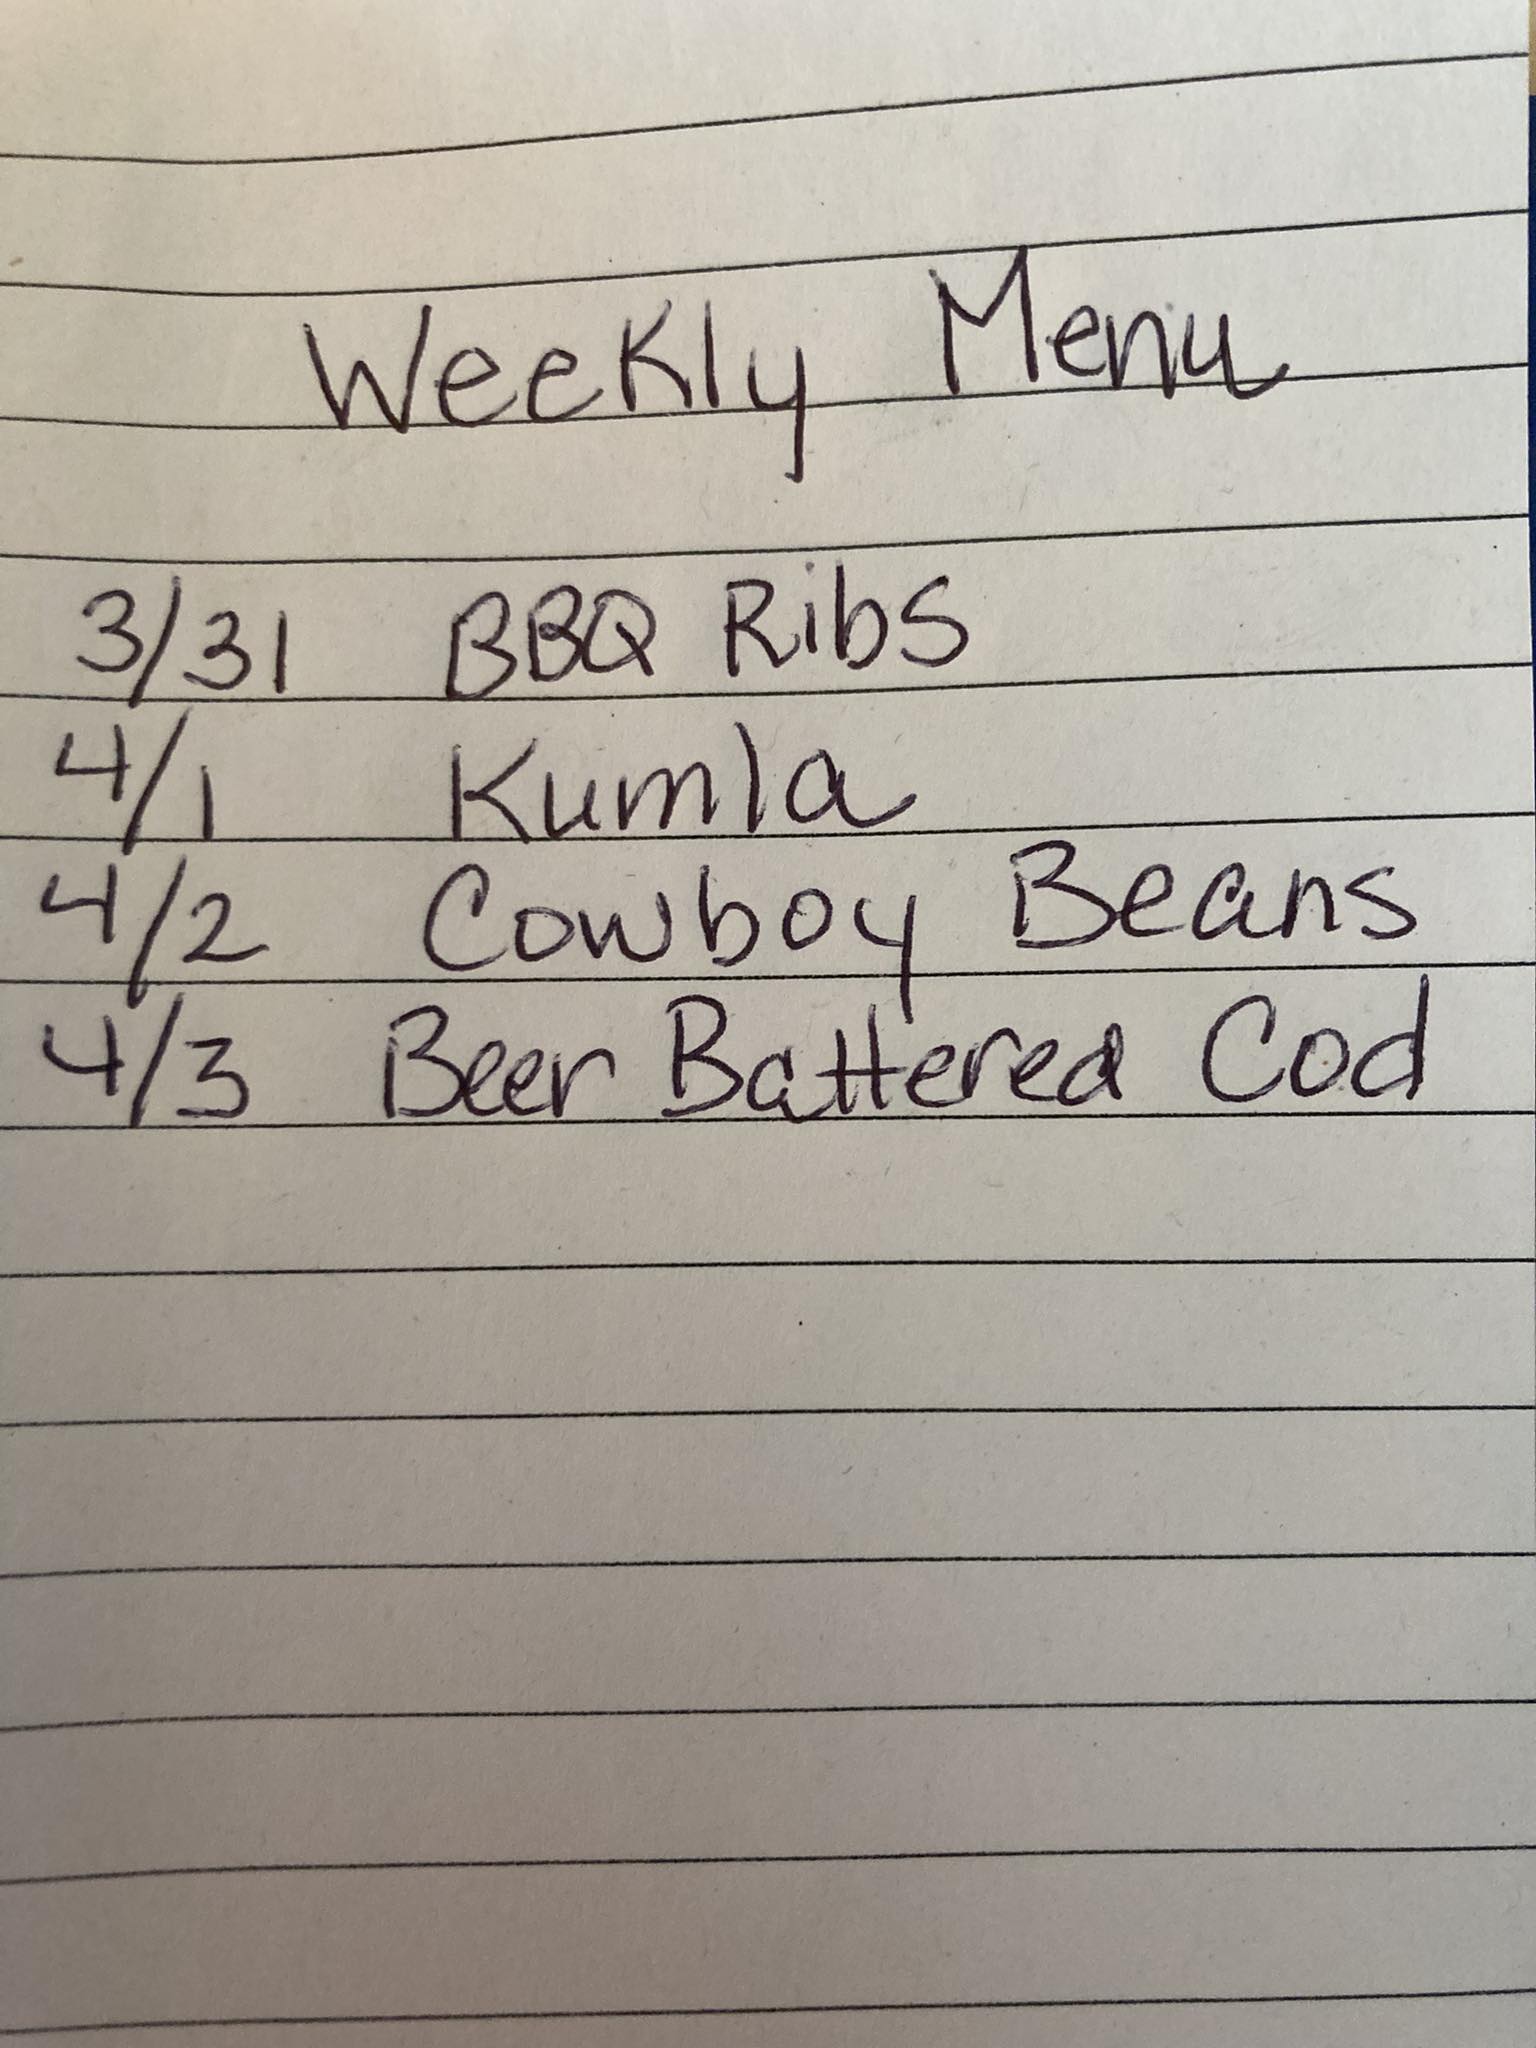 Weekly Menu
3/31 BBQ Ribs
4/1 Kumla
4/2 Cowboy Beans
4/3 Beer Battered Cod